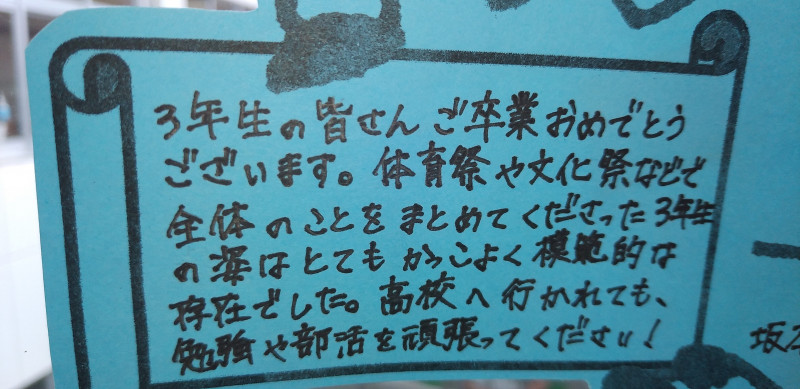 3年生の皆さんご卒業おめでとう
ございます。体育祭や文化祭などで
全体のことをまとめてくださった3年生
の姿はとてもかっこよく模範的な
存在でした。高校へ行かれても、
勉強や部活を頑張ってください!
坂